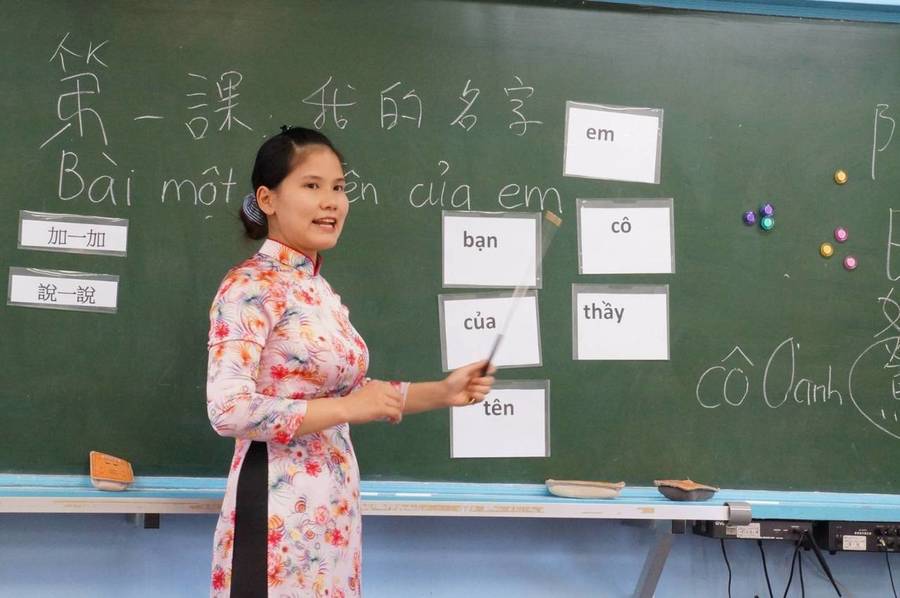 第一課:我的名字
Bài một ên của em
加一加
說一說
em
bạn
cô
của
thầy
tên
cô Oanh